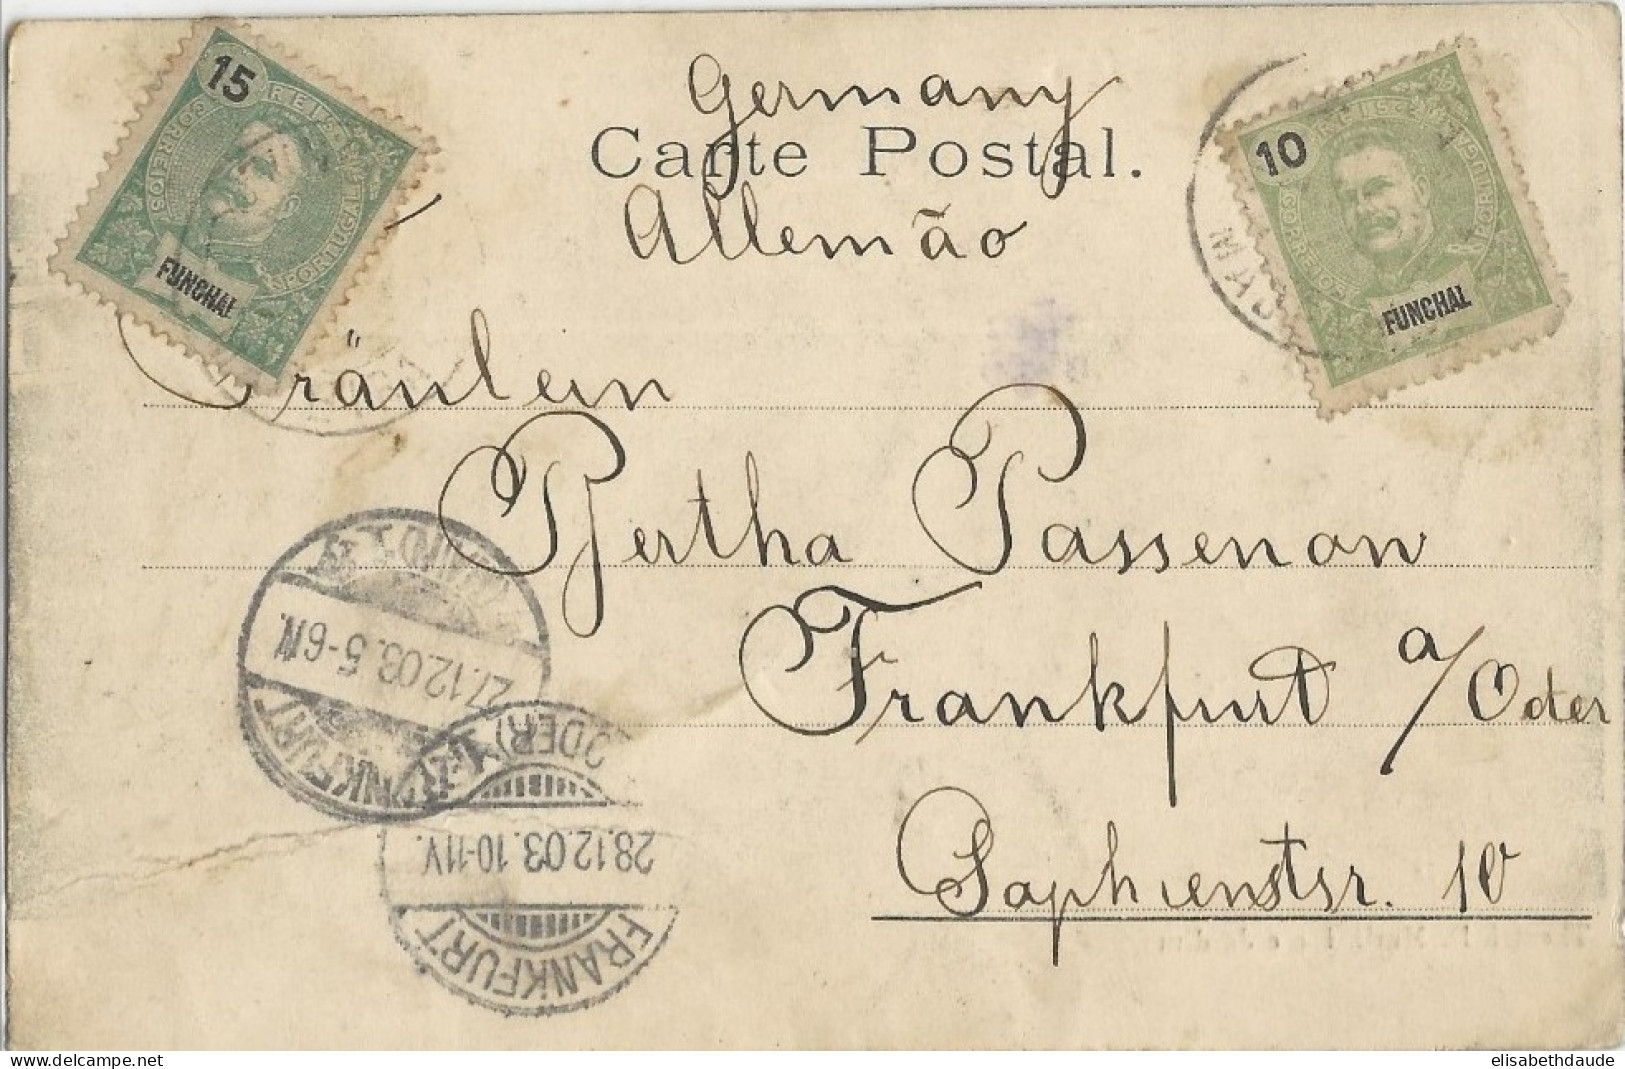 Germany
Carte Postal.
Allemão
15
REIS
CORREIOS
PORTUGAL
FUNCHAL
10
REIS
CORREIOS
PORTUGAL
FUNCHAL
Fräulein
Bertha Passenow
Frankfurt a/Oder
Sophienstr. 10
27.12.03. 5-6N.
FRANKFURT
(ODER)
28.12.03. 10-11V.
FRANKFURT
delcampe.net
elisabethdaude